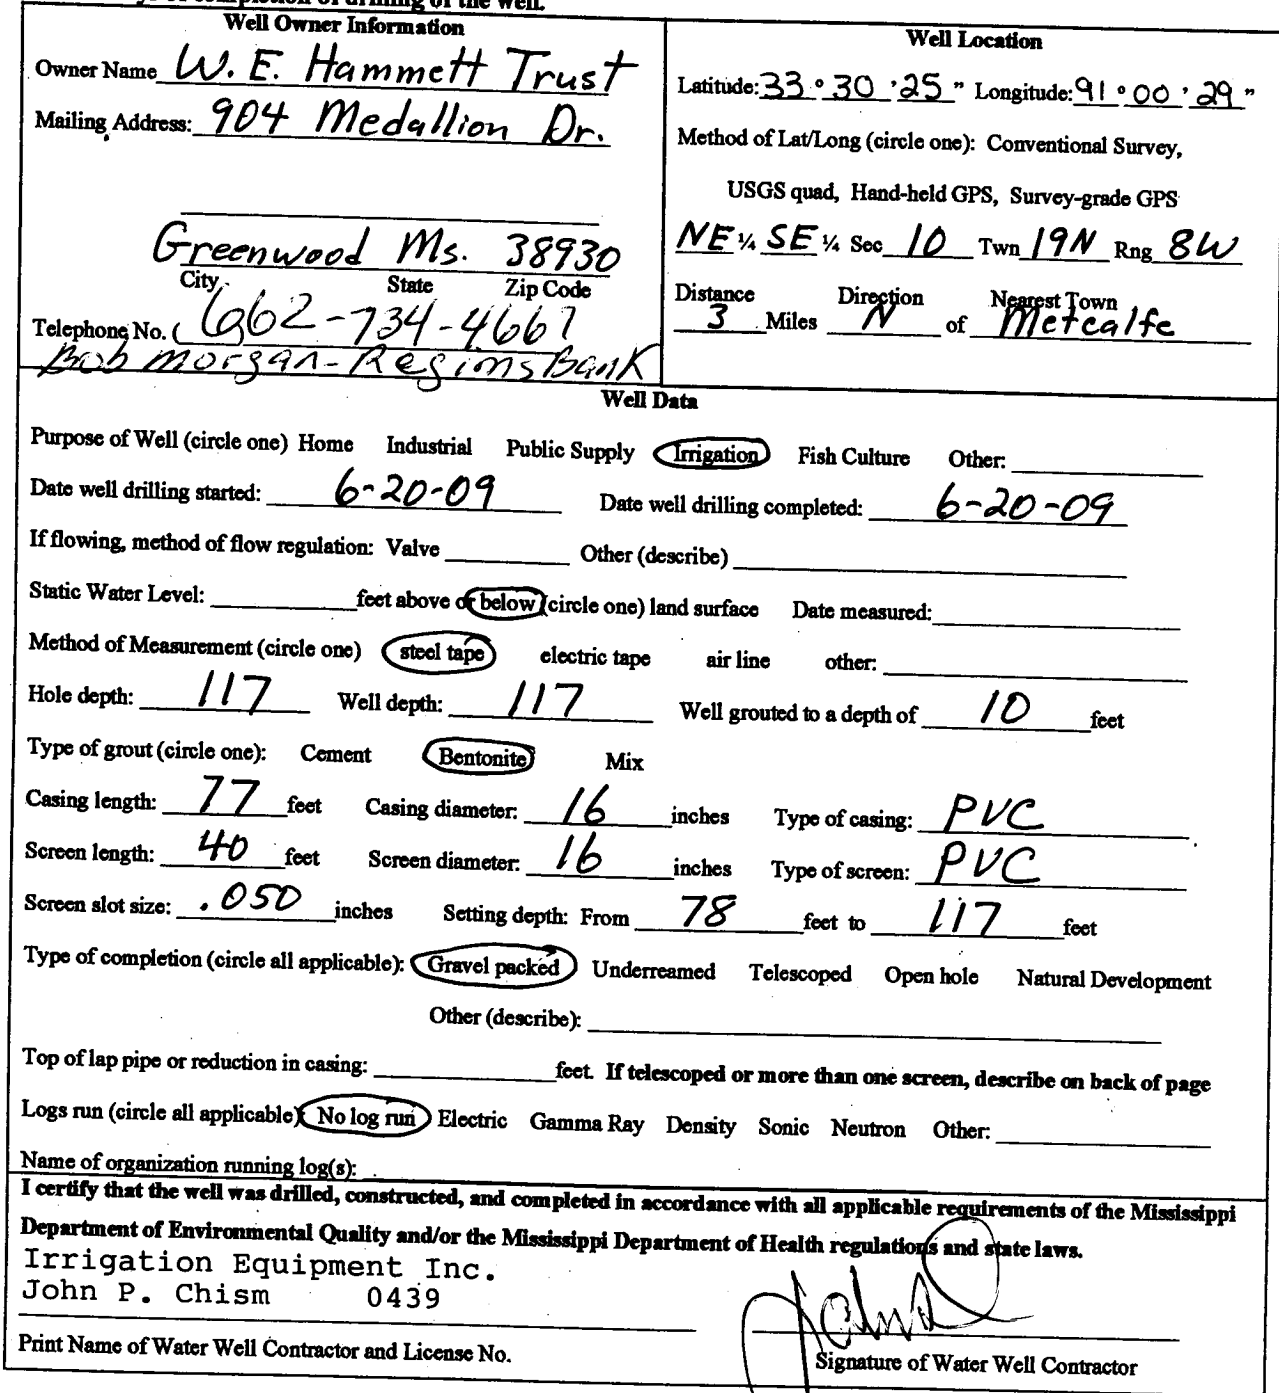 Well Owner Information
Owner Name W. E. Hammett Trust
Mailing Address: 904 Medallion Dr.
Greenwood Ms. 38930
City State Zip Code
Telephone No. ( 662-734-4667
Bob Morgan-Regins Bank
Well Location
Latitude: 33 ° 30 ' 25 " Longitude: 91 ° 00 ' 29 "
Method of Lat/Long (circle one): Conventional Survey,
USGS quad, Hand-held GPS, Survey-grade GPS
NE ¼ SE ¼ Sec 10 Twn 19N Rng 8W
Distance Direction Nearest Town
3 Miles N of Metcalfe
Well Data
Purpose of Well (circle one) Home Industrial Public Supply Irrigation Fish Culture Other:
Date well drilling started: 6-20-09 Date well drilling completed: 6-20-09
If flowing, method of flow regulation: Valve Other (describe)
Static Water Level: feet above or below (circle one) land surface Date measured:
Method of Measurement (circle one) steel tape electric tape air line other:
Hole depth: 117 Well depth: 117 Well grouted to a depth of 10 feet
Type of grout (circle one): Cement Bentonite Mix
Casing length: 77 feet Casing diameter: 16 inches Type of casing: PVC
Screen length: 40 feet Screen diameter: 16 inches Type of screen: PVC
Screen slot size: .050 inches Setting depth: From 78 feet to 117 feet
Type of completion (circle all applicable): Gravel packed Underreamed Telescoped Open hole Natural Development
Other (describe):
Top of lap pipe or reduction in casing: feet. If telescoped or more than one screen, describe on back of page
Logs run (circle all applicable) No log run Electric Gamma Ray Density Sonic Neutron Other:
Name of organization running log(s):
I certify that the well was drilled, constructed, and completed in accordance with all applicable requirements of the Mississippi
Department of Environmental Quality and/or the Mississippi Department of Health regulations and state laws.
Irrigation Equipment Inc.
John P. Chism 0439
Print Name of Water Well Contractor and License No.
Signature of Water Well Contractor